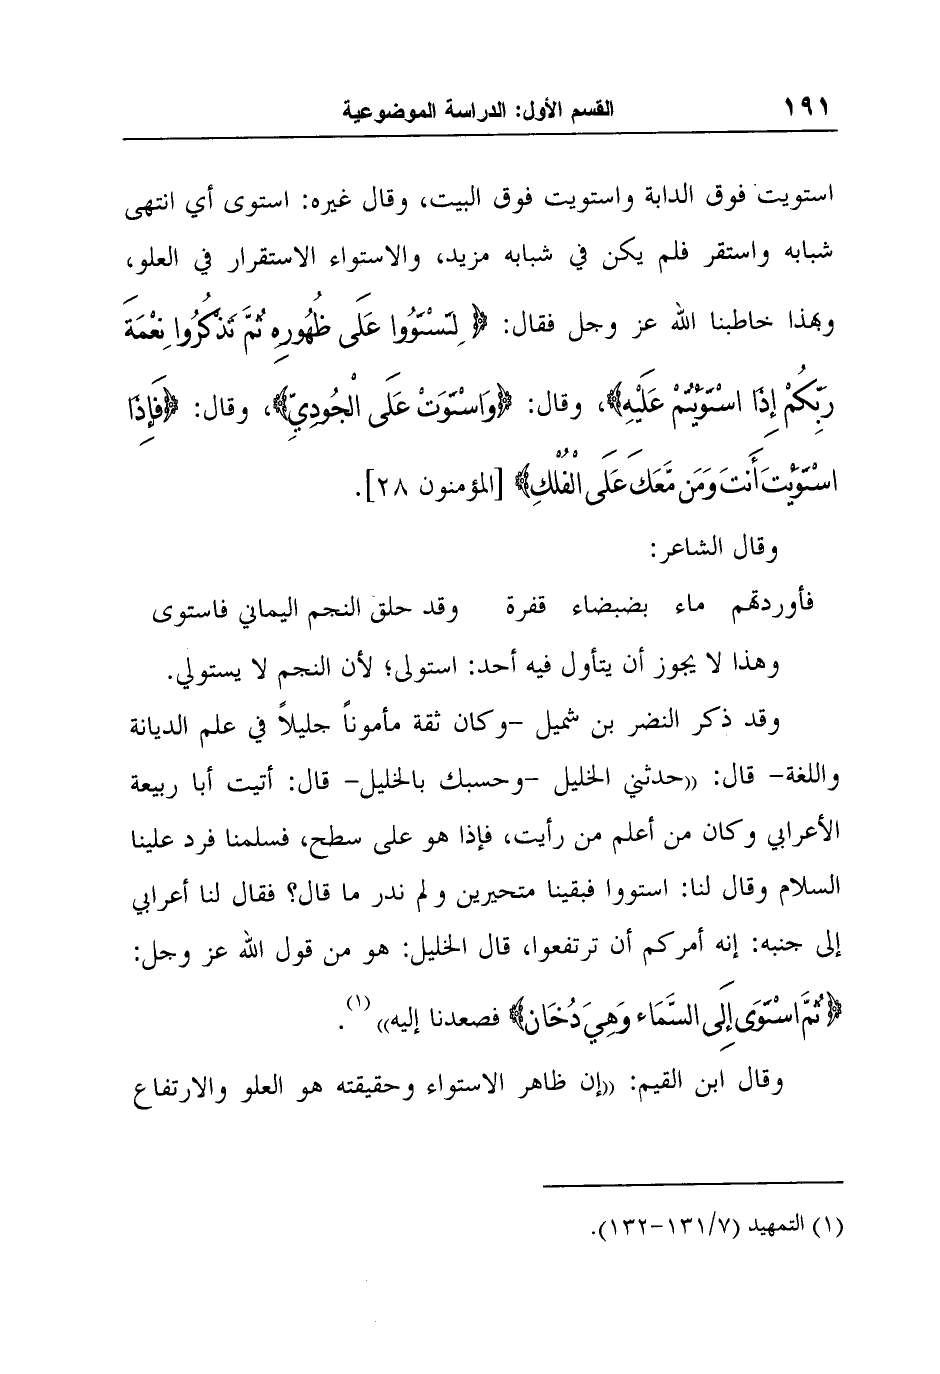 ١٩١ القسم الأول: الدراسة الموضوعية
استويت فوق الدابة واستويت فوق البيت، وقال غيره: استوى أي انتهى
شبابه واستقر فلم يكن في شبابه مزيد، والاستواء الاستقرار في العلو،
وبهذا خاطبنا الله عز وجل فقال: ﴿لِتَسْتَوُوا عَلَى ظُهُورِهِ ثُمَّ تَذْكُرُوا نِعْمَةَ
رَبِّكُمْ إِذَا اسْتَوَيْتُمْ عَلَيْهِ﴾، وقال: ﴿وَاسْتَوَتْ عَلَى الْجُودِيِّ﴾، وقال: ﴿فَإِذَا
اسْتَوَيْتَ أَنتَ وَمَن مَّعَكَ عَلَى الْفُلْكِ﴾ [المؤمنون ٢٨].
وقال الشاعر:
فأوردتهم ماء بضبضاء قفرة وقد حلق النجم اليماني فاستوى
وهذا لا يجوز أن يتأول فيه أحد: استولى؛ لأن النجم لا يستولي.
وقد ذكر النضر بن شميل -وكان ثقة مأموناً جليلاً في علم الديانة
واللغة- قال: ((حدثني الخليل -وحسبك بالخليل- قال: أتيت أبا ربيعة
الأعرابي وكان من أعلم من رأيت، فإذا هو على سطح، فسلمنا فرد علينا
السلام وقال لنا: استووا فبقينا متحيرين ولم ندر ما قال؟ فقال لنا أعرابي
إلى جنبه: إنه أمركم أن ترتفعوا، قال الخليل: هو من قول الله عز وجل:
﴿ثُمَّ اسْتَوَى إِلَى السَّمَاء وَهِيَ دُخَان﴾ فصعدنا إليه))(١).
وقال ابن القيم: ((إن ظاهر الاستواء وحقيقته هو العلو والارتفاع
(١) التمهيد (٧/١٣١-١٣٢).